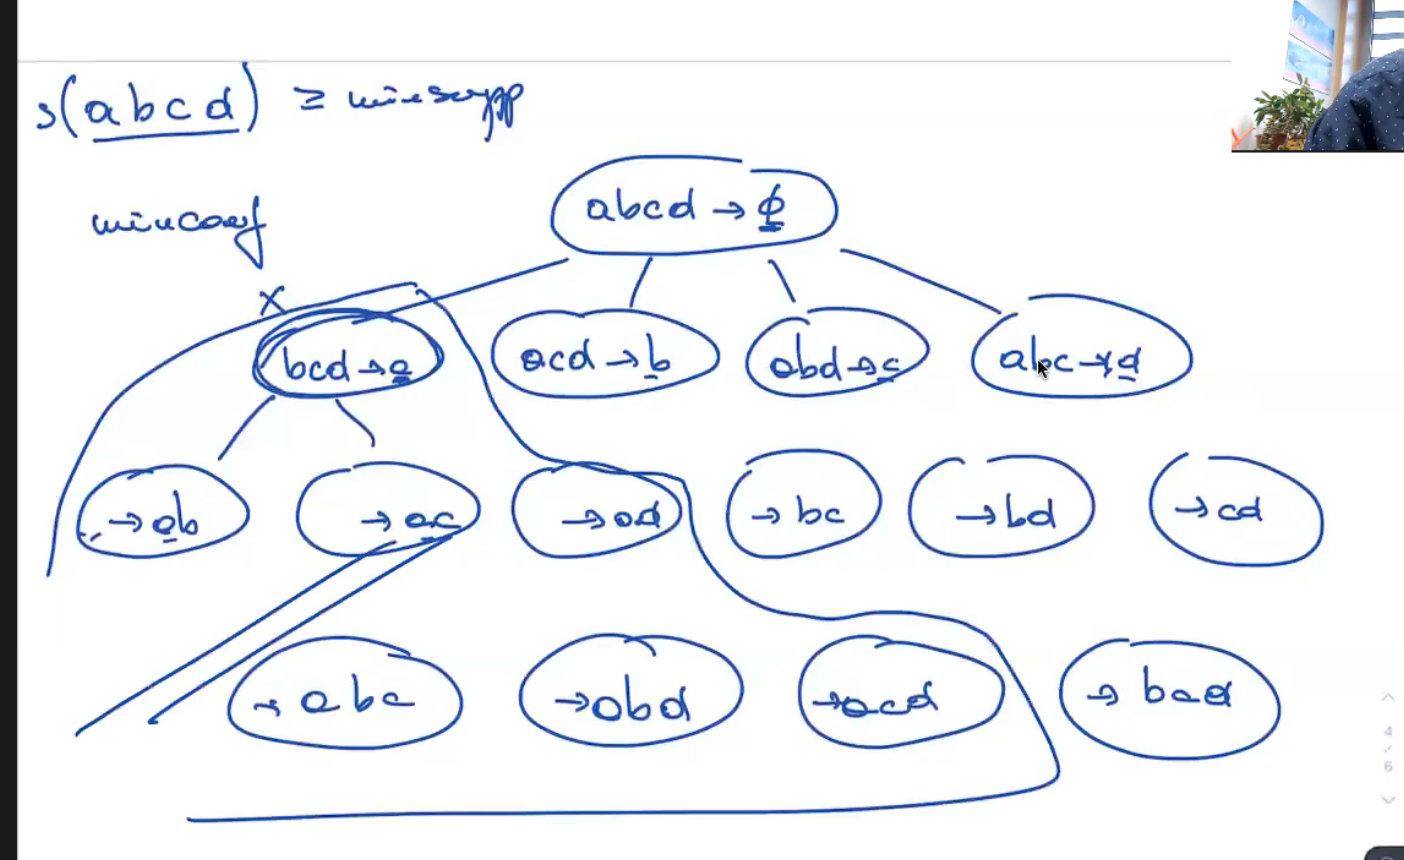 s(abcd) ≥ minsupp
abcd → ϕ
minconf
x
bcd → a
acd → b
abd → c
abc → d
→ ab
→ ac
→ ad
→ bc
→ bd
→ cd
→ abc
→ abd
→ acd
→ bcd
4
/
6